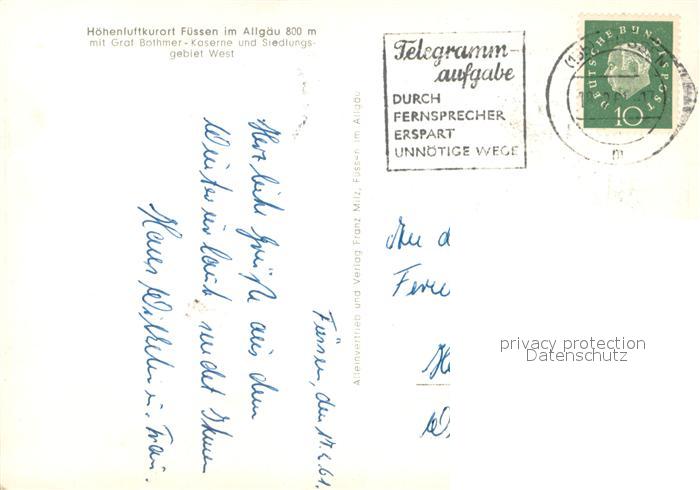 Höhenluftkurort Füssen im Allgäu 800 m
mit Graf Bothmer-Kaserne und Siedlungs-
gebiet West
Telegramm-
aufgabe
DURCH
FERNSPRECHER
ERSPART
UNNÖTIGE WEGE
DEUTSCHE BUNDESPOST
10
m
Alleinvertrieb und Verlag Franz Milz, Füssen im Allgäu
Füssen, den 17.2.61.
Herzliche Grüße aus dem
Winterurlaub sendet Ihnen
Hans Wilhelm u. Frau.
An d
Fern
privacy protection
Datenschutz